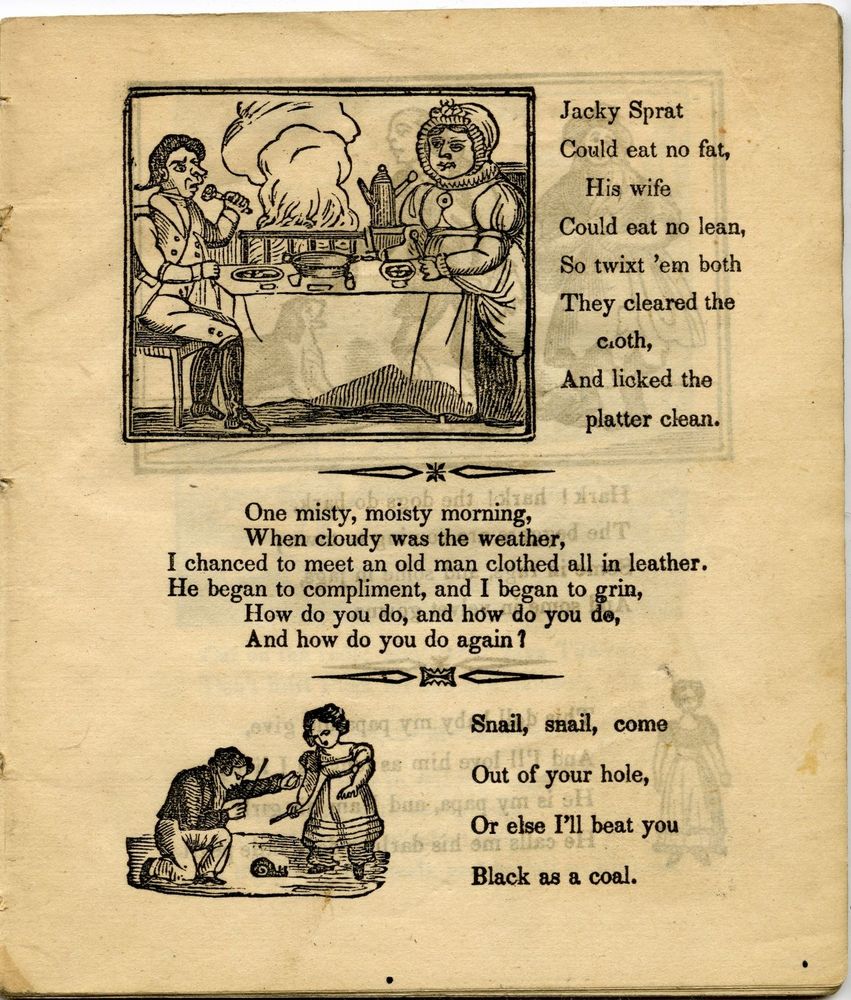 Jacky Sprat
Could eat no fat,
His wife
Could eat no lean,
So twixt 'em both
They cleared the
cloth,
And licked the
platter clean.
One misty, moisty morning,
When cloudy was the weather,
I chanced to meet an old man clothed all in leather.
He began to compliment, and I began to grin,
How do you do, and how do you do,
And how do you do again?
Snail, snail, come
Out of your hole,
Or else I'll beat you
Black as a coal.